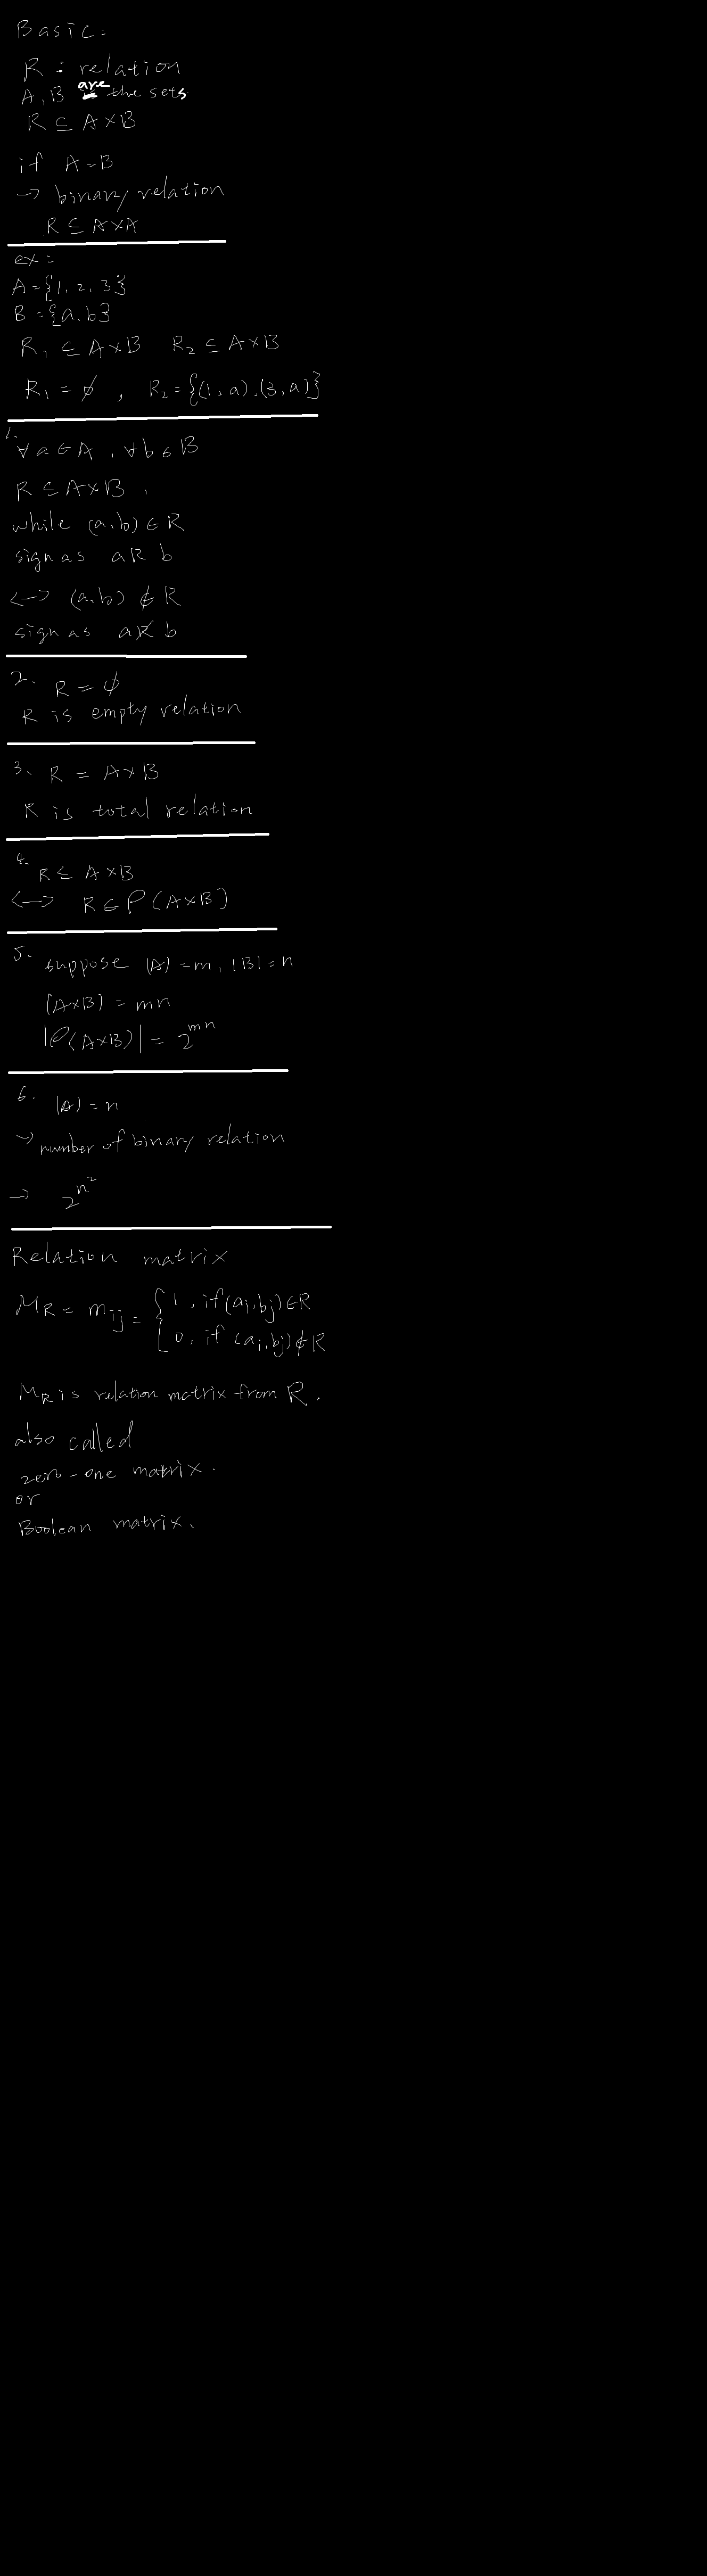 Basic:
R : relation
A, B are the sets
R ⊆ A×B
if A=B
→ binary relation
R ⊆ A×A
ex:
A={1, 2, 3}
B={a, b}
R₁ ⊆ A×B R₂ ⊆ A×B
R₁ = ∅ , R₂={(1, a), (3, a)}
1.
∀a∈A, ∀b∈B
R ⊆ A×B,
while (a,b) ∈ R
sign as aRb
<-> (a,b) ∉ R
sign as aR̸b
2. R = ∅
R is empty relation
3. R = A×B
R is total relation
4. R ⊆ A×B
<-> R ∈ P(A×B)
5. suppose |A|=m, |B|=n
|A×B| = mn
|P(A×B)| = 2^mn
6. |A|=n
→ number of binary relation
→ 2^n²
Relation matrix
M_R = m_ij = { 1, if (a_i, b_j) ∈ R
0, if (a_i, b_j) ∉ R
M_R is relation matrix from R.
also called
zero-one matrix.
or
Boolean matrix.